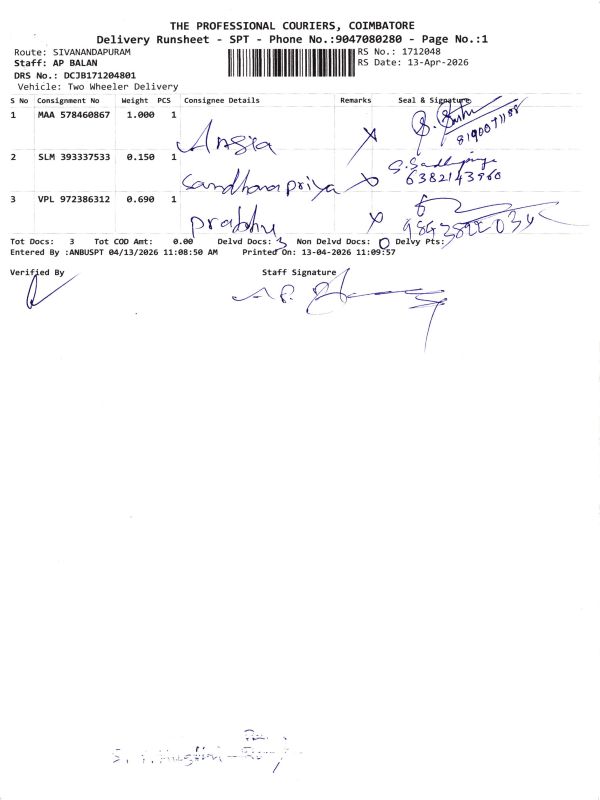 THE PROFESSIONAL COURIERS, COIMBATORE
Delivery Runsheet - SPT - Phone No.:9047080280 - Page No.:1
Route: SIVANANDAPURAM RS No.: 1712048
Staff: AP BALAN RS Date: 13-Apr-2026
DRS No.: DCJB171204801
Vehicle: Two Wheeler Delivery
S No Consignment No Weight PCS Consignee Details Remarks Seal & Signature
1 MAA 578460867 1.000 1
2 SLM 393337533 0.150 1 Sandhanapriya
6382143960
3 VPL 972386312 0.690 1 prabhu
Tot Docs: 3 Tot COD Amt: 0.00 Delvd Docs: 3 Non Delvd Docs: 0 Delvy Pts:
Entered By :ANBUSPT 04/13/2026 11:08:50 AM Printed On: 13-04-2026 11:09:57
Verified By Staff Signature